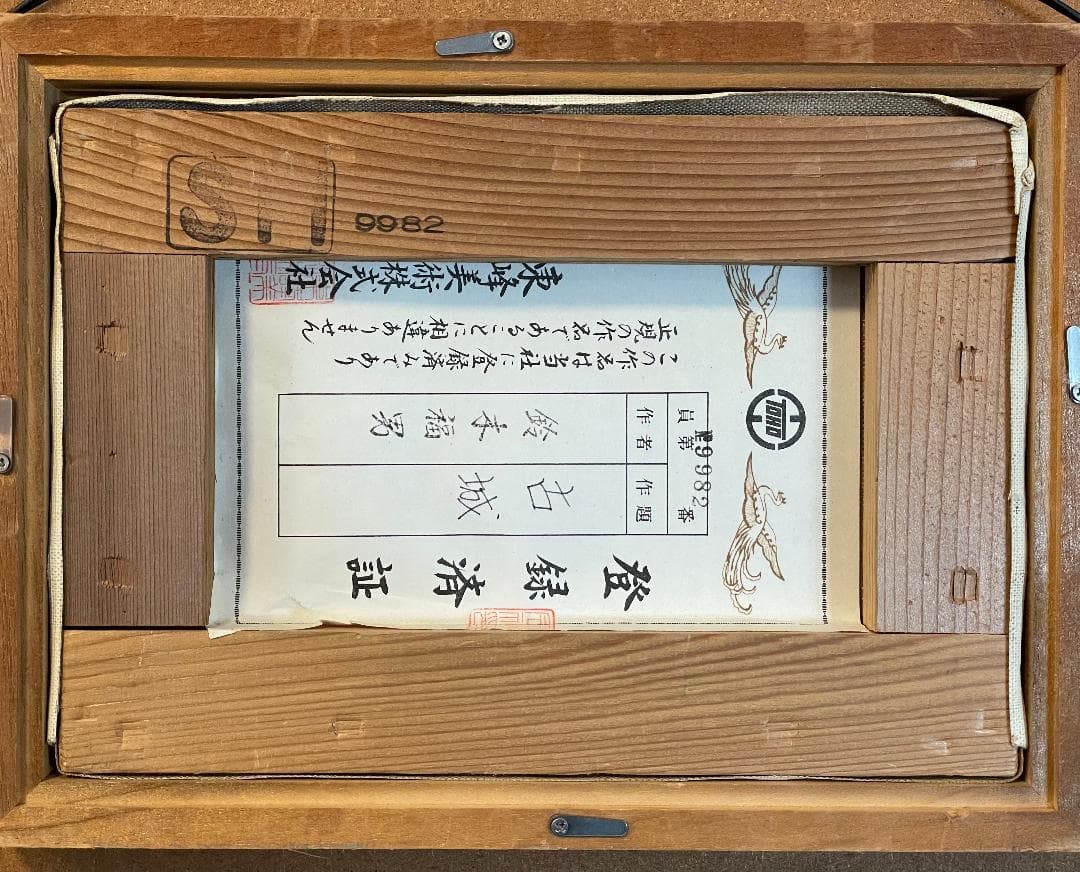 9982
TOHO
登録済証
員第E9982番
作題 古城
作者 鈴木福男
この作品は当社に登録済みであり
正規の作品であることに相違ありません
東峰美術株式会社